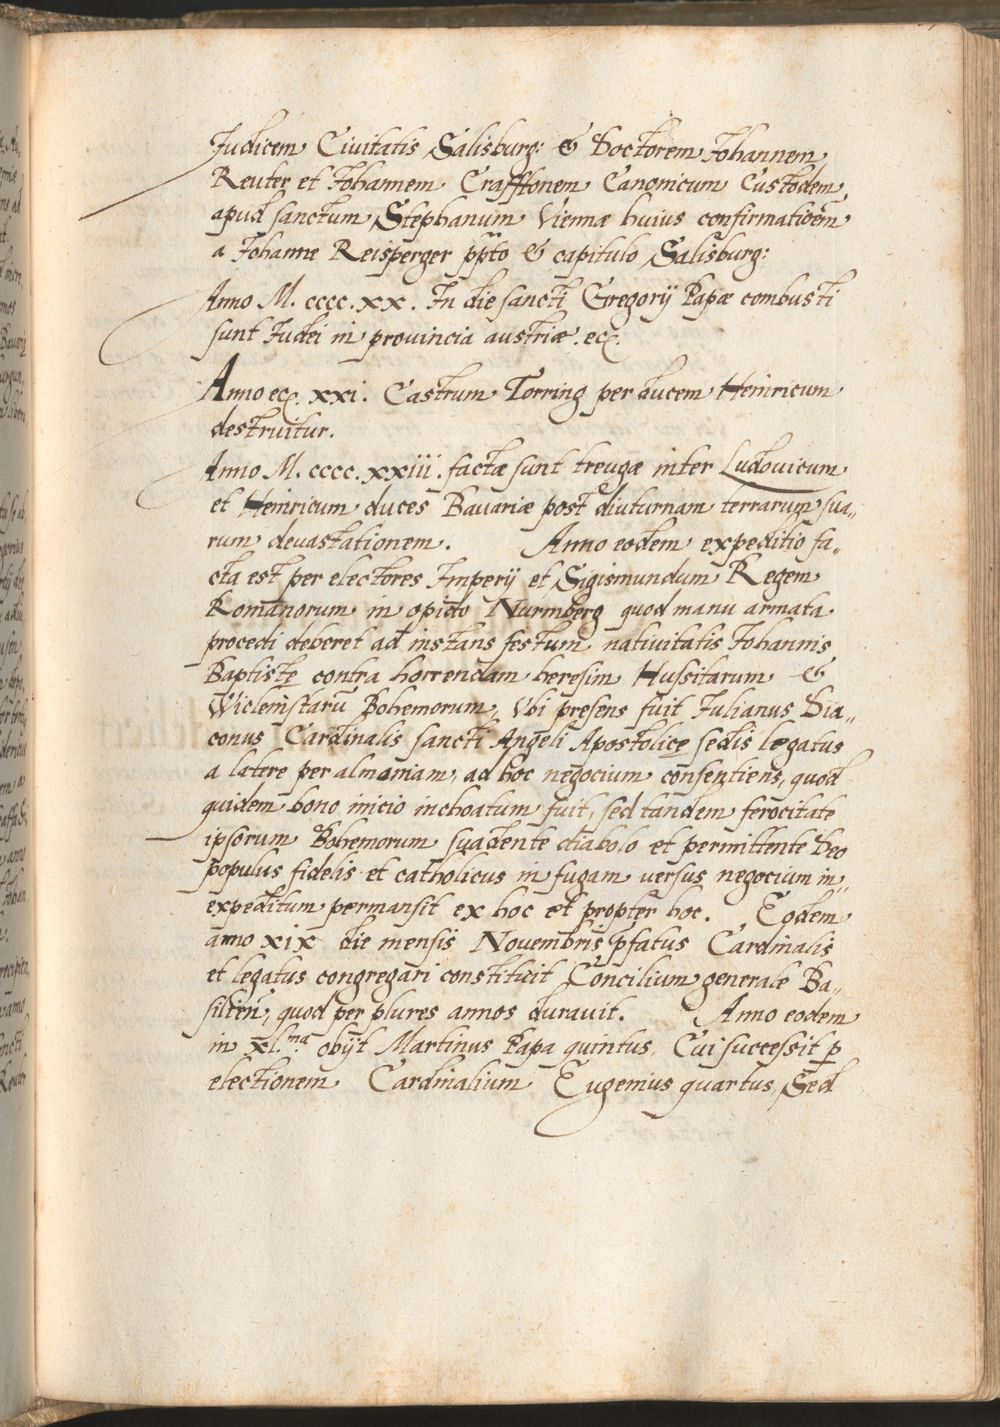 Judicem Civitatis Salisburg: & Doctorem Johannem
Reuter et Johannem Crafftonem Canonicum Custodem
apud sanctum Stephanum Viennæ huius confirmatioēm
a Johanne Reisperger pp̄to & capitulo Salisburg:
Anno M. cccc. xx. In die sancti Gregorij Papæ combusti
sunt Judei in provincia austriæ. ec.
Anno ec. xxi. Castrum Torring per ducem Heinricum
destruitur.
Anno M. cccc. xxiii. factæ sunt treugæ inter Ludovicum
et Heinricum duces Bauariæ post diuturnam terrarum sua„
rum devastationem. Anno eodem expeditio fa„
cta est per electores Imperij et Sigismundum Regem
Romanorum in opido Nurmberg quod manu armata
procedi deberet ad instans festum nativitatis Johannis
Baptiste contra horrendam heresim Hussitarum &
Wiclemistarū Bohemorum, Vbi presens fuit Julianus Dia„
conus Cardinalis sancti Angeli Apostolicę sedis legatus
a latere per almaniam, ad hoc negocium consentiens, quod
quidem bono inicio inchoatum fuit, sed tandem ferocitate
ipsorum Bohemorum suadente diabolo et permittente Deo
populus fidelis et catholicus in fugam versus negocium in„
expeditum permansit ex hoc et propter hoc. Eodem
anno xix die mensis Novembris p̄fatus Cardinalis
et legatus congregari constituit Concilium generale Ba„
silien̄, quod per plures annos duravit. Anno eodem
in xl.ma obijt Martinus Papa quintus, Cui successit p̱
electionem Cardinalium Eugenius quartus, Sed